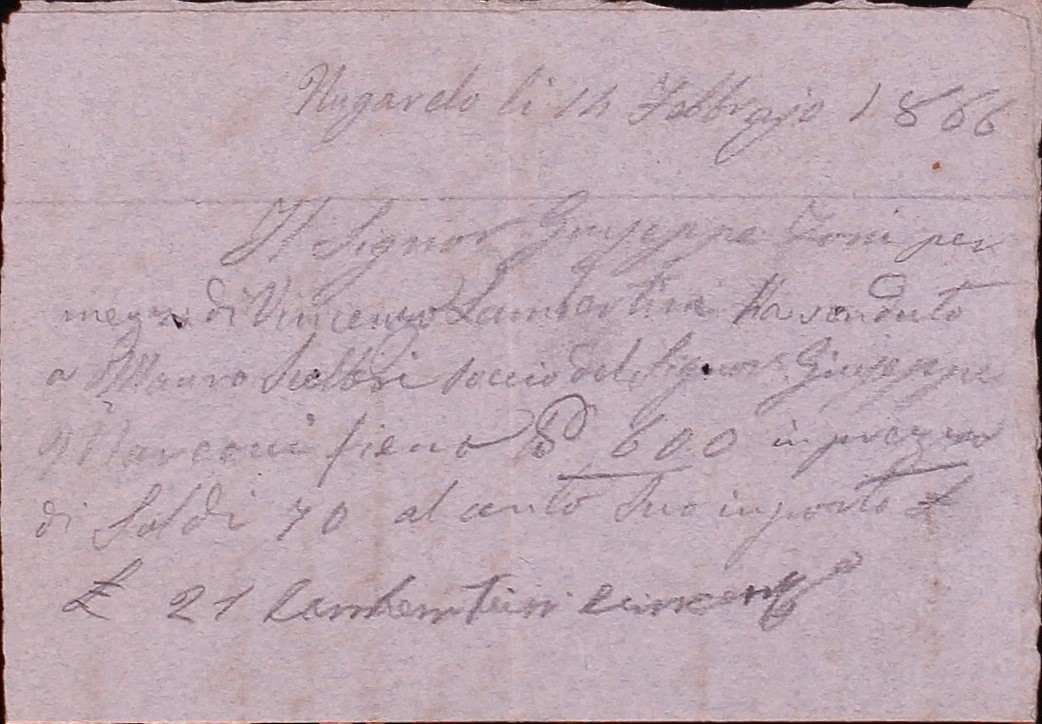 Nugareto li 14 Febbrajo 1866
Il Signor Giuseppe Zoni per
mezzo di Vincenzo Lambertini ha venduto
a Mauro soccio del Signor Giuseppe
Marconi fieno 600 in prezzo
di Soldi 70 al cento Suo importo £
£ 21 Lambertini Vincenzo